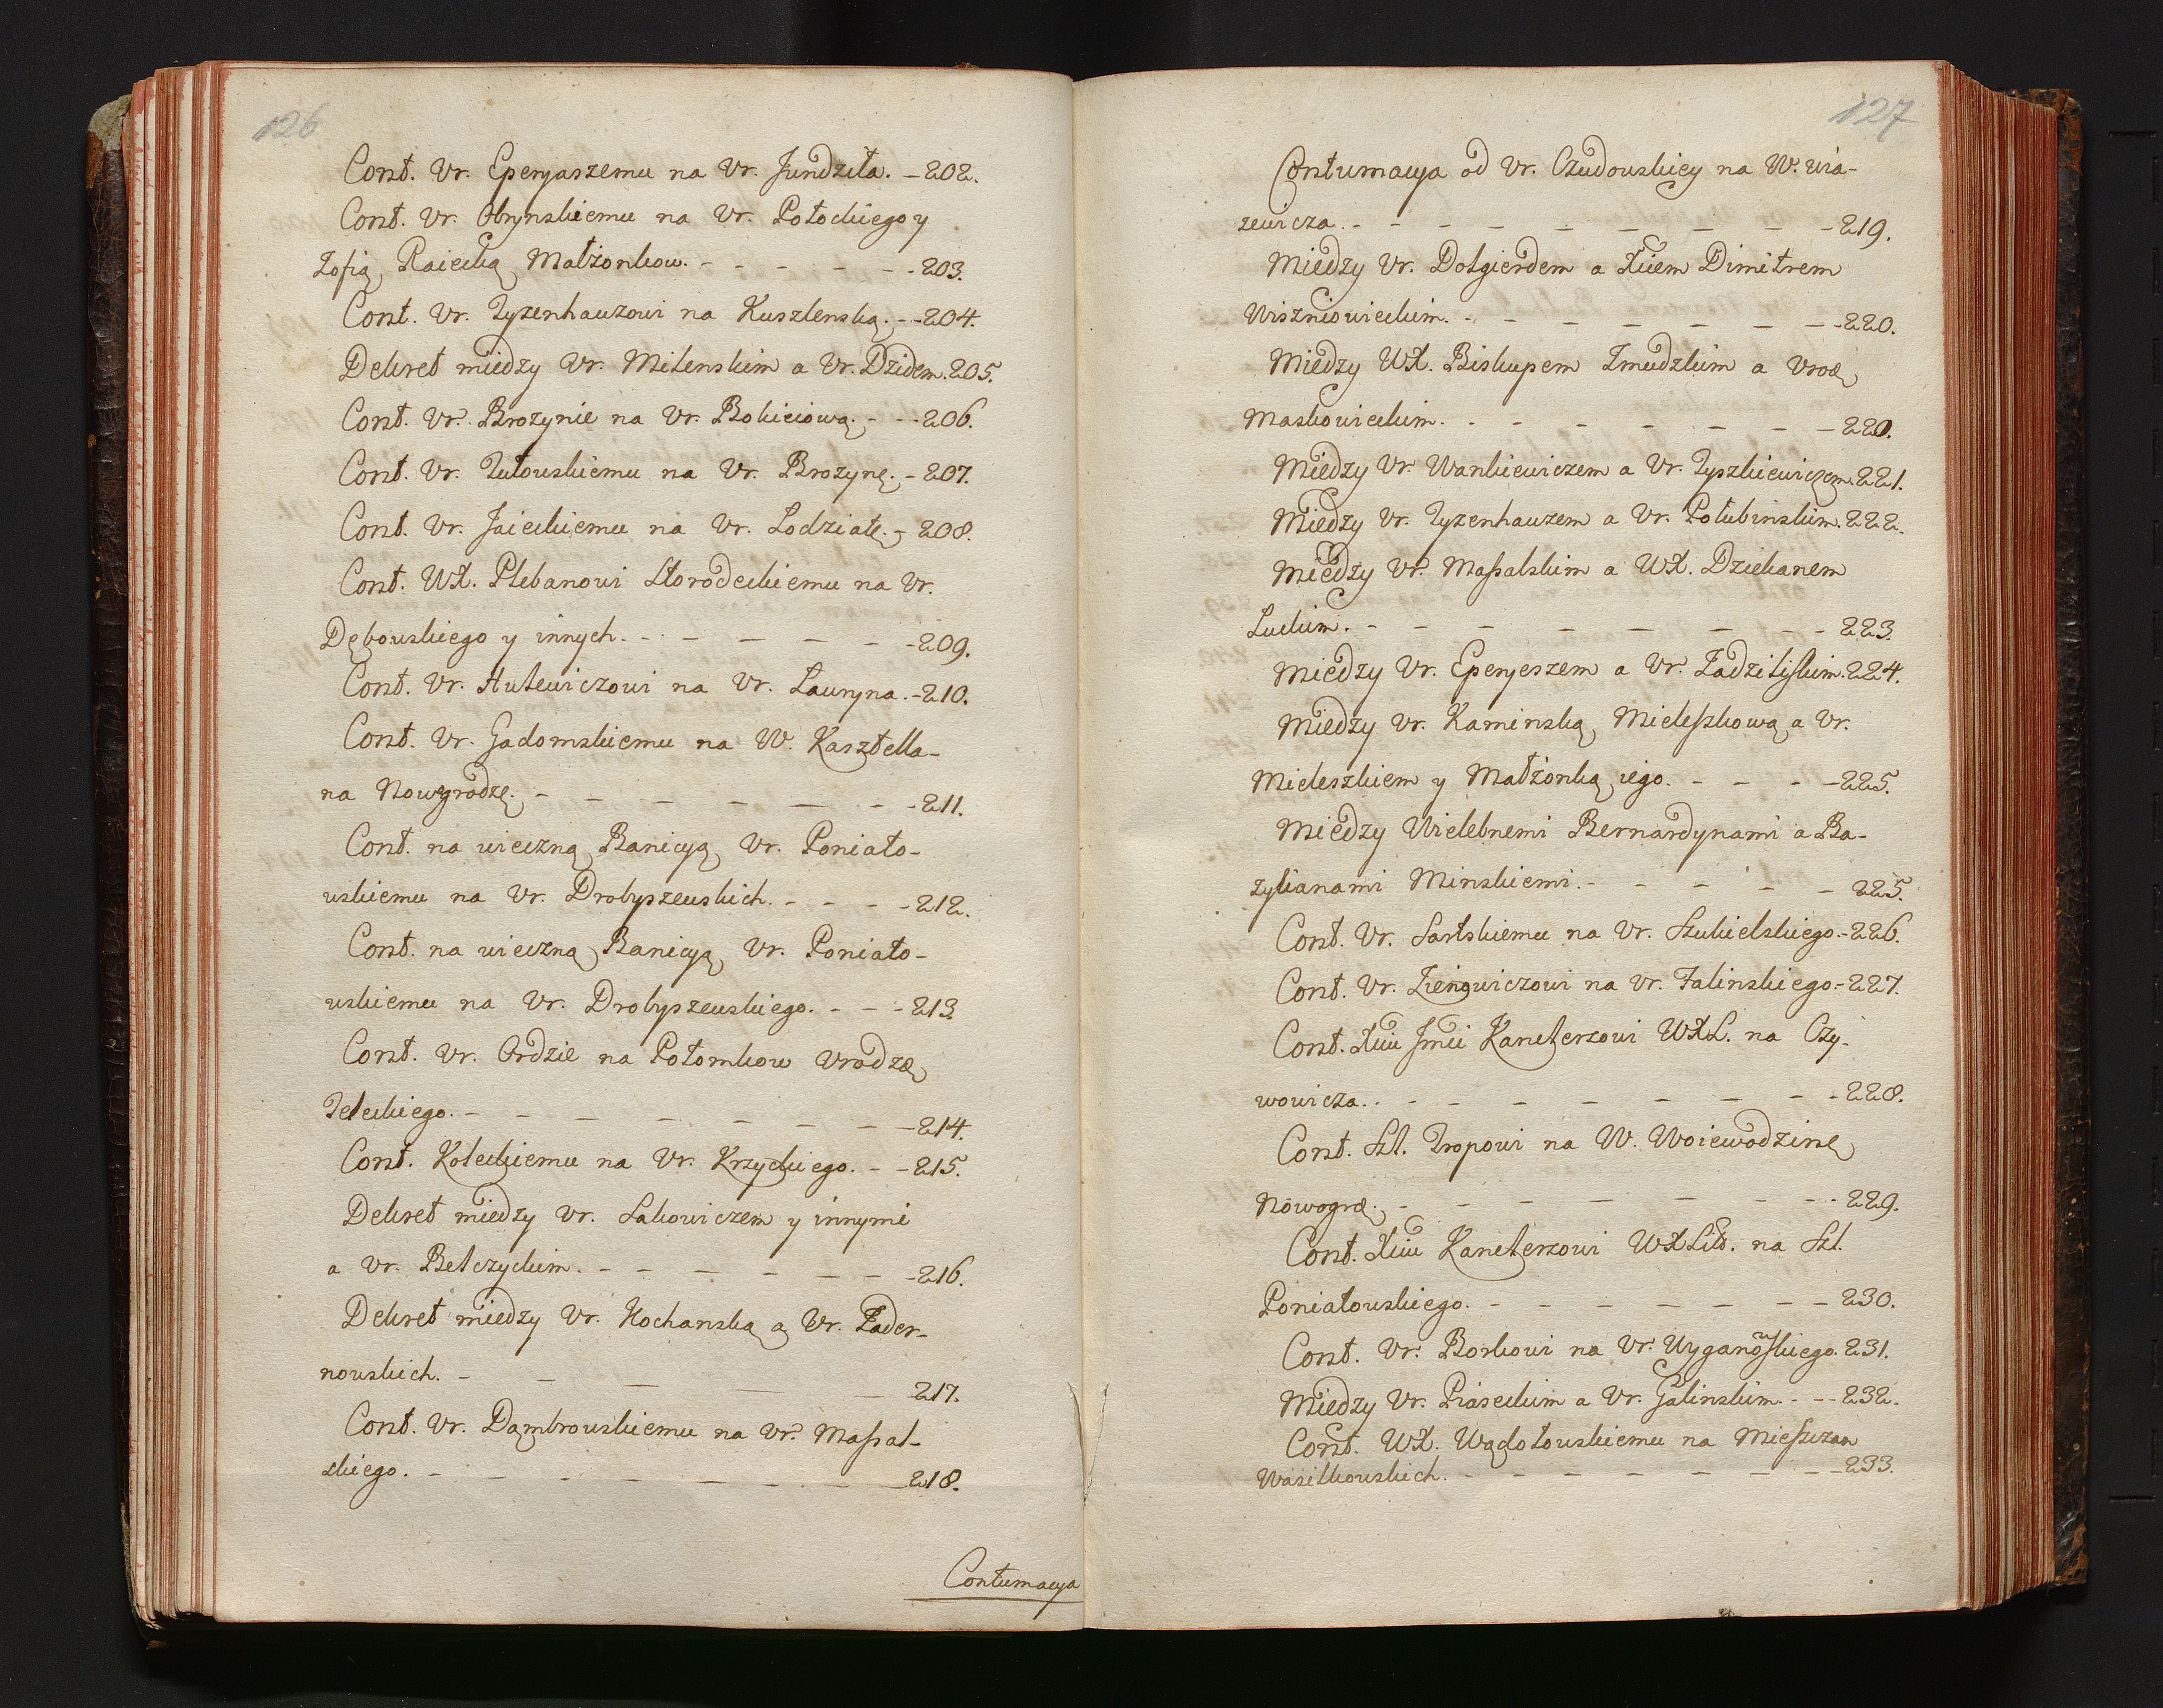 126
Cont. Vr. Eperyaszemu na Vr. Jundziła. – 202.
Cont. Vr. Obrynskiemu na Vr. Potockiego y
Zofią Raiecką Małżonkow. – – – – – – 203.
Cont. Vr. Tyzenhauzowi na Kuszlenską. – – 204.
Dekret miedzy Vr. Milenskim a Vr. Dzidem. 205.
Cont. Vr. Brozynie na Vr. Bokieiową. – – – 206.
Cont. Vr. Tutowskiemu na Vr. Brozynę. – 207.
Cont. Vr. Jaieckiemu na Vr. Lodziatę. – 208.
Cont. WX. Plebanowi Storodeckiemu na Vr.
Dębowskiego y innych. – – – – – – 209.
Cont. Vr. Hutewiczowi na Vr. Lauryna. – 210.
Cont. Vr. Gadomskiemu na W. Kasztella-
na Nowogrodzę. – – – – – – – 211.
Cont. na wieczną Banicyą Vr. Poniato-
wskiemu na Vr. Drobyszewskich. – – – – 212.
Cont. na wieczną Banicyą Vr. Poniato-
wskiemu na Vr. Drobyszewskiego. – – – 213
Cont. Vr. Ordzie na Potomkow Vrodzę
Teleckiego. – – – – – – – – 214.
Cont. Koleckiemu na Vr. Krzyckiego. – – 215.
Dekret miedzy Vr. Sakowiczem y innymi
a Vr. Betczyckim. – – – – – – – 216.
Dekret miedzy Vr. Kochanską a Vr. Zader-
nowskich. – – – – – 217.
Cont. Vr. Dąmbrowskiemu na Vr. Massal-
skiego. – – – – – – – 218.
Contumacya
127
Contumacya od Vr. Czudowskiey na W. Wia-
zewicza. – – – – – – – – – 219.
Miedzy Vr. Dolgierdem a Xiem Dimitrem
Wiszniowieckim. – – – – – – – – 220.
Miedzy WX. Biskupem Zmudzkim a Vrod
Maskowieckim. – – – – – – – 220.
Miedzy Vr. Wankiewiczem a Vr. Tyszkiewiczem. 221.
Miedzy Vr. Tyzenhauzem a Vr. Połubinskim. 222.
Miedzy Vr. Massalskim a WX. Dziekanem
Luckim. – – – – – – – – 223.
Miedzy Vr. Eperyeszem a Vr. Zadzilyskim. 224.
Miedzy Vr. Kaminską Mieleszkową a Vr.
Mieleszkiem y Małżonką iego. – – – – 225.
Miedzy Wielebnemi Bernardynami a Ba-
zylianami Minskiemi. – – – – – 225.
Cont. Vr. Sartskiemu na Vr. Szukielskiego. – 226.
Cont. Vr. Zienowiczowi na Vr. Falinskiego. – 227.
Cont. Xiu Jmci Kanclerzowi WXL. na Czy-
wowicza. – – – – – – – – 228.
Cont. Szl. Tropowi na W. Woiewodzinę
Nowogrd. – – – – – – – 229.
Cont. Xiu Kanclerzowi WXLitt. na Szl.
Poniatowskiego. – – – – – – – 230.
Cont. Vr. Borkowi na Vr. Wyganowskiego. 231.
Miedzy Vr. Piaseckim a Vr. Galinskim. – – 232.
Cont. WX. Wądołowskiemu na Mieszczan
Wasilkowskich. – – – – – – – 233.